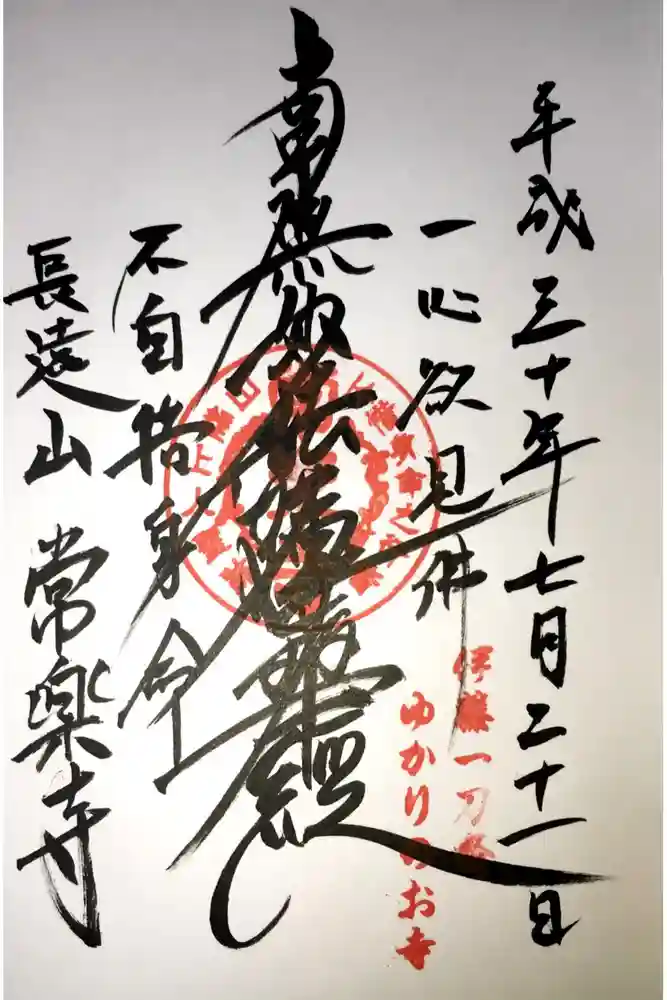 平成三十年七月二十一日
伊藤一刀斎
ゆかりのお寺
一心欲見佛
南無妙法蓮華経
不自惜身命
長遠山 常樂寺